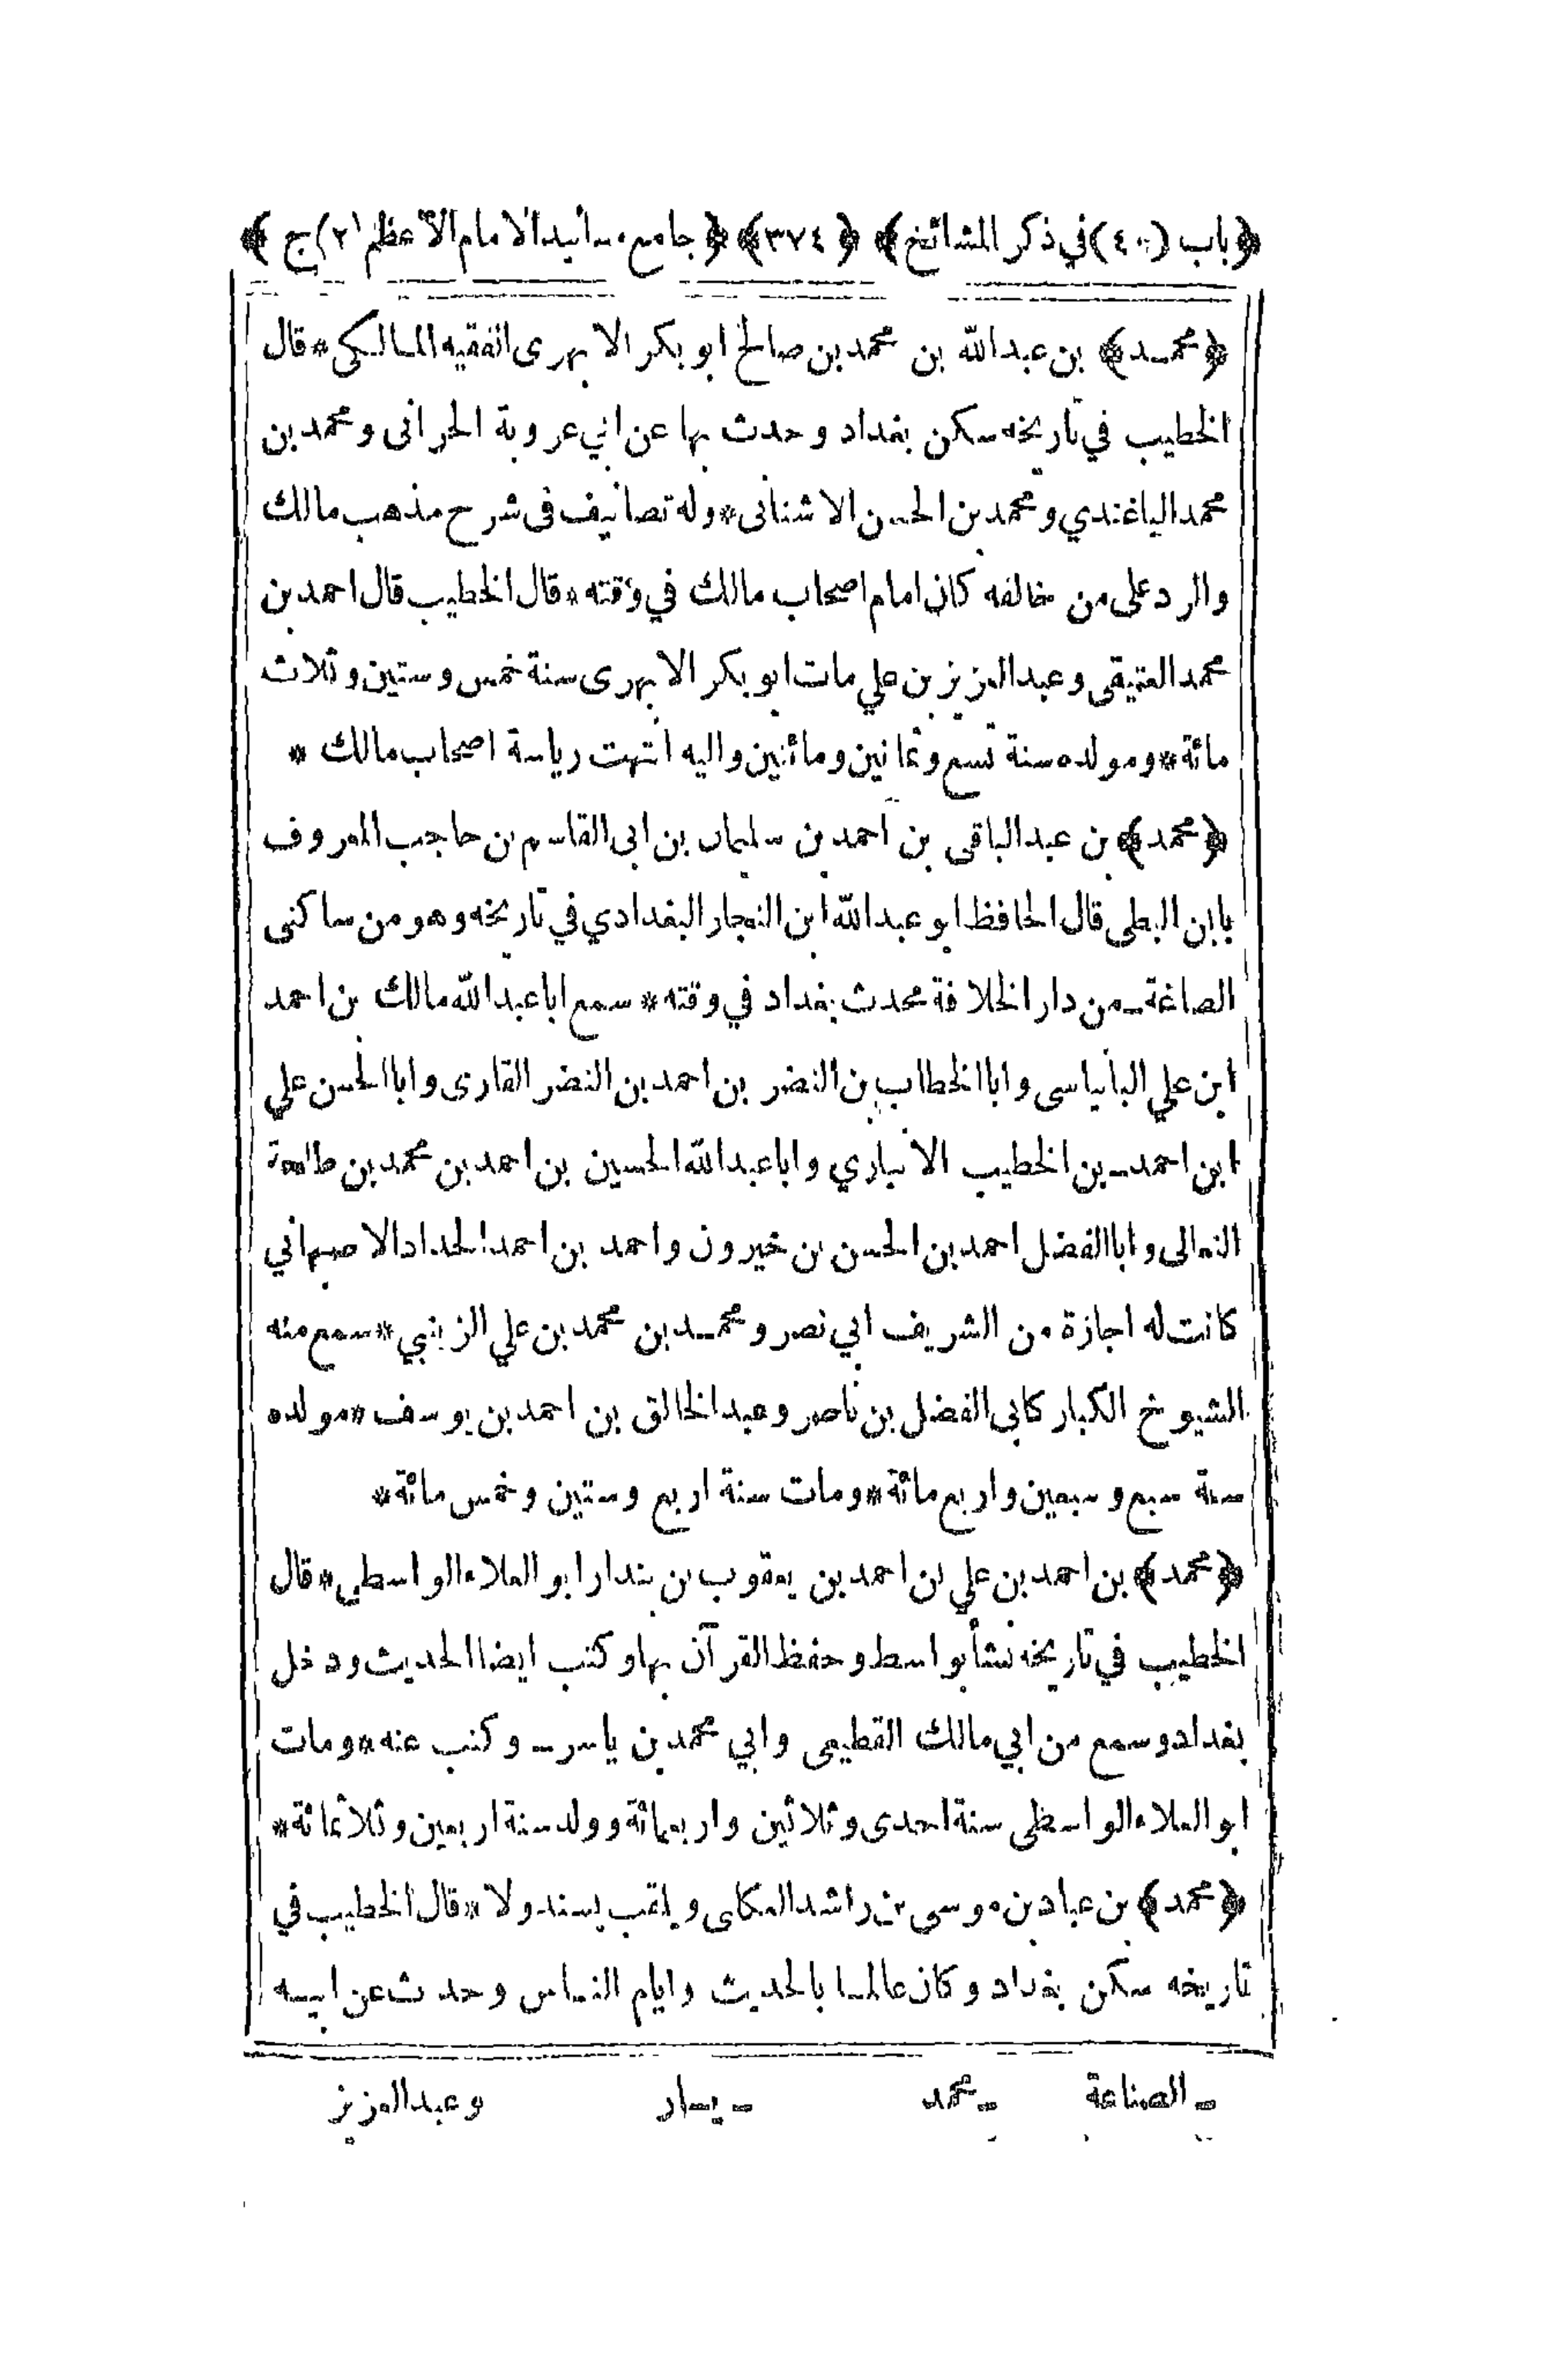 ﴿باب (٤٠) في ذكر المشائخ﴾ ﴿٣٧٤﴾ ﴿جامع مسانيد الامام الأعظم (٢) ج﴾
﴿محمد﴾ بن عبدالله بن محمد بن صالح ابو بكر الابهرى الفقيه المالكى * قال
الخطيب في تاريخه سكن بغداد وحدث بها عن ابي عروبة الحرانى ومحمد بن
محمد الباغندي ومحمد بن الحسن الاشنانى * وله تصانيف فى شرح مذهب مالك
والرد على من خالفه كان امام اصحاب مالك في وقته * قال الخطيب قال احمد بن
محمد العتيقى وعبد العزيز بن علي مات ابو بكر الابهرى سنة خمس وستين وثلاث
مائة * ومولده سنة تسع وثمانين ومائنين واليه انتهت رياسة اصحاب مالك *
﴿محمد﴾ بن عبد الباقى بن احمد بن سليمان بن ابى القاسم بن حاجب المعروف
بابن البطى قال الحافظ ابو عبدالله ابن النجار البغدادي في تاريخه وهو من ساكنى
الصاغة ـ من دار الخلافة محدث بغداد في وقته * سمع ابا عبدالله مالك بن احمد
ابن علي البانياسى وابا الخطاب بن النضر بن احمد بن النضر القارى وابا الحسن علي
ابن احمد ـ بن الخطيب الانباري وابا عبدالله الحسين بن احمد بن محمد بن طلحة
النعالى وابا الفضل احمد بن الحسن بن خيرون واحمد بن احمد الحداد الاصبهاني
كانت له اجازة من الشريف ابي نصر ومحمد بن محمد بن علي الزينبي * سمع منه
الشيوخ الكبار كابى الفضل بن ناصر وعبد الخالق بن احمد بن يوسف * مولده
سنة سبع وسبعين واربع مائة * ومات سنة اربع وستين وخمس مائة *
﴿محمد﴾ بن احمد بن علي بن احمد بن يعقوب بن بندار ابو العلاء الواسطى * قال
الخطيب في تاريخه نشأ بواسط وحفظ القرآن بها وكتب ايضا الحديث ودخل
بغداد وسمع من ابي مالك القطيعى وابي محمد بن ياسر ـ وكتب عنه * ومات
ابو العلاء الواسطى سنة احدى وثلاثين واربعمائة وولد سنة اربعين وثلاثمائة *
﴿محمد﴾ بن عباد بن موسى بن راشد العكلى ويلقب بسندولا * قال الخطيب في
تاريخه سكن بغداد وكان عالما بالحديث وايام الناس وحدث عن ابيه
ـ الصناعة ـ محمد ـ يسار وعبد العزيز